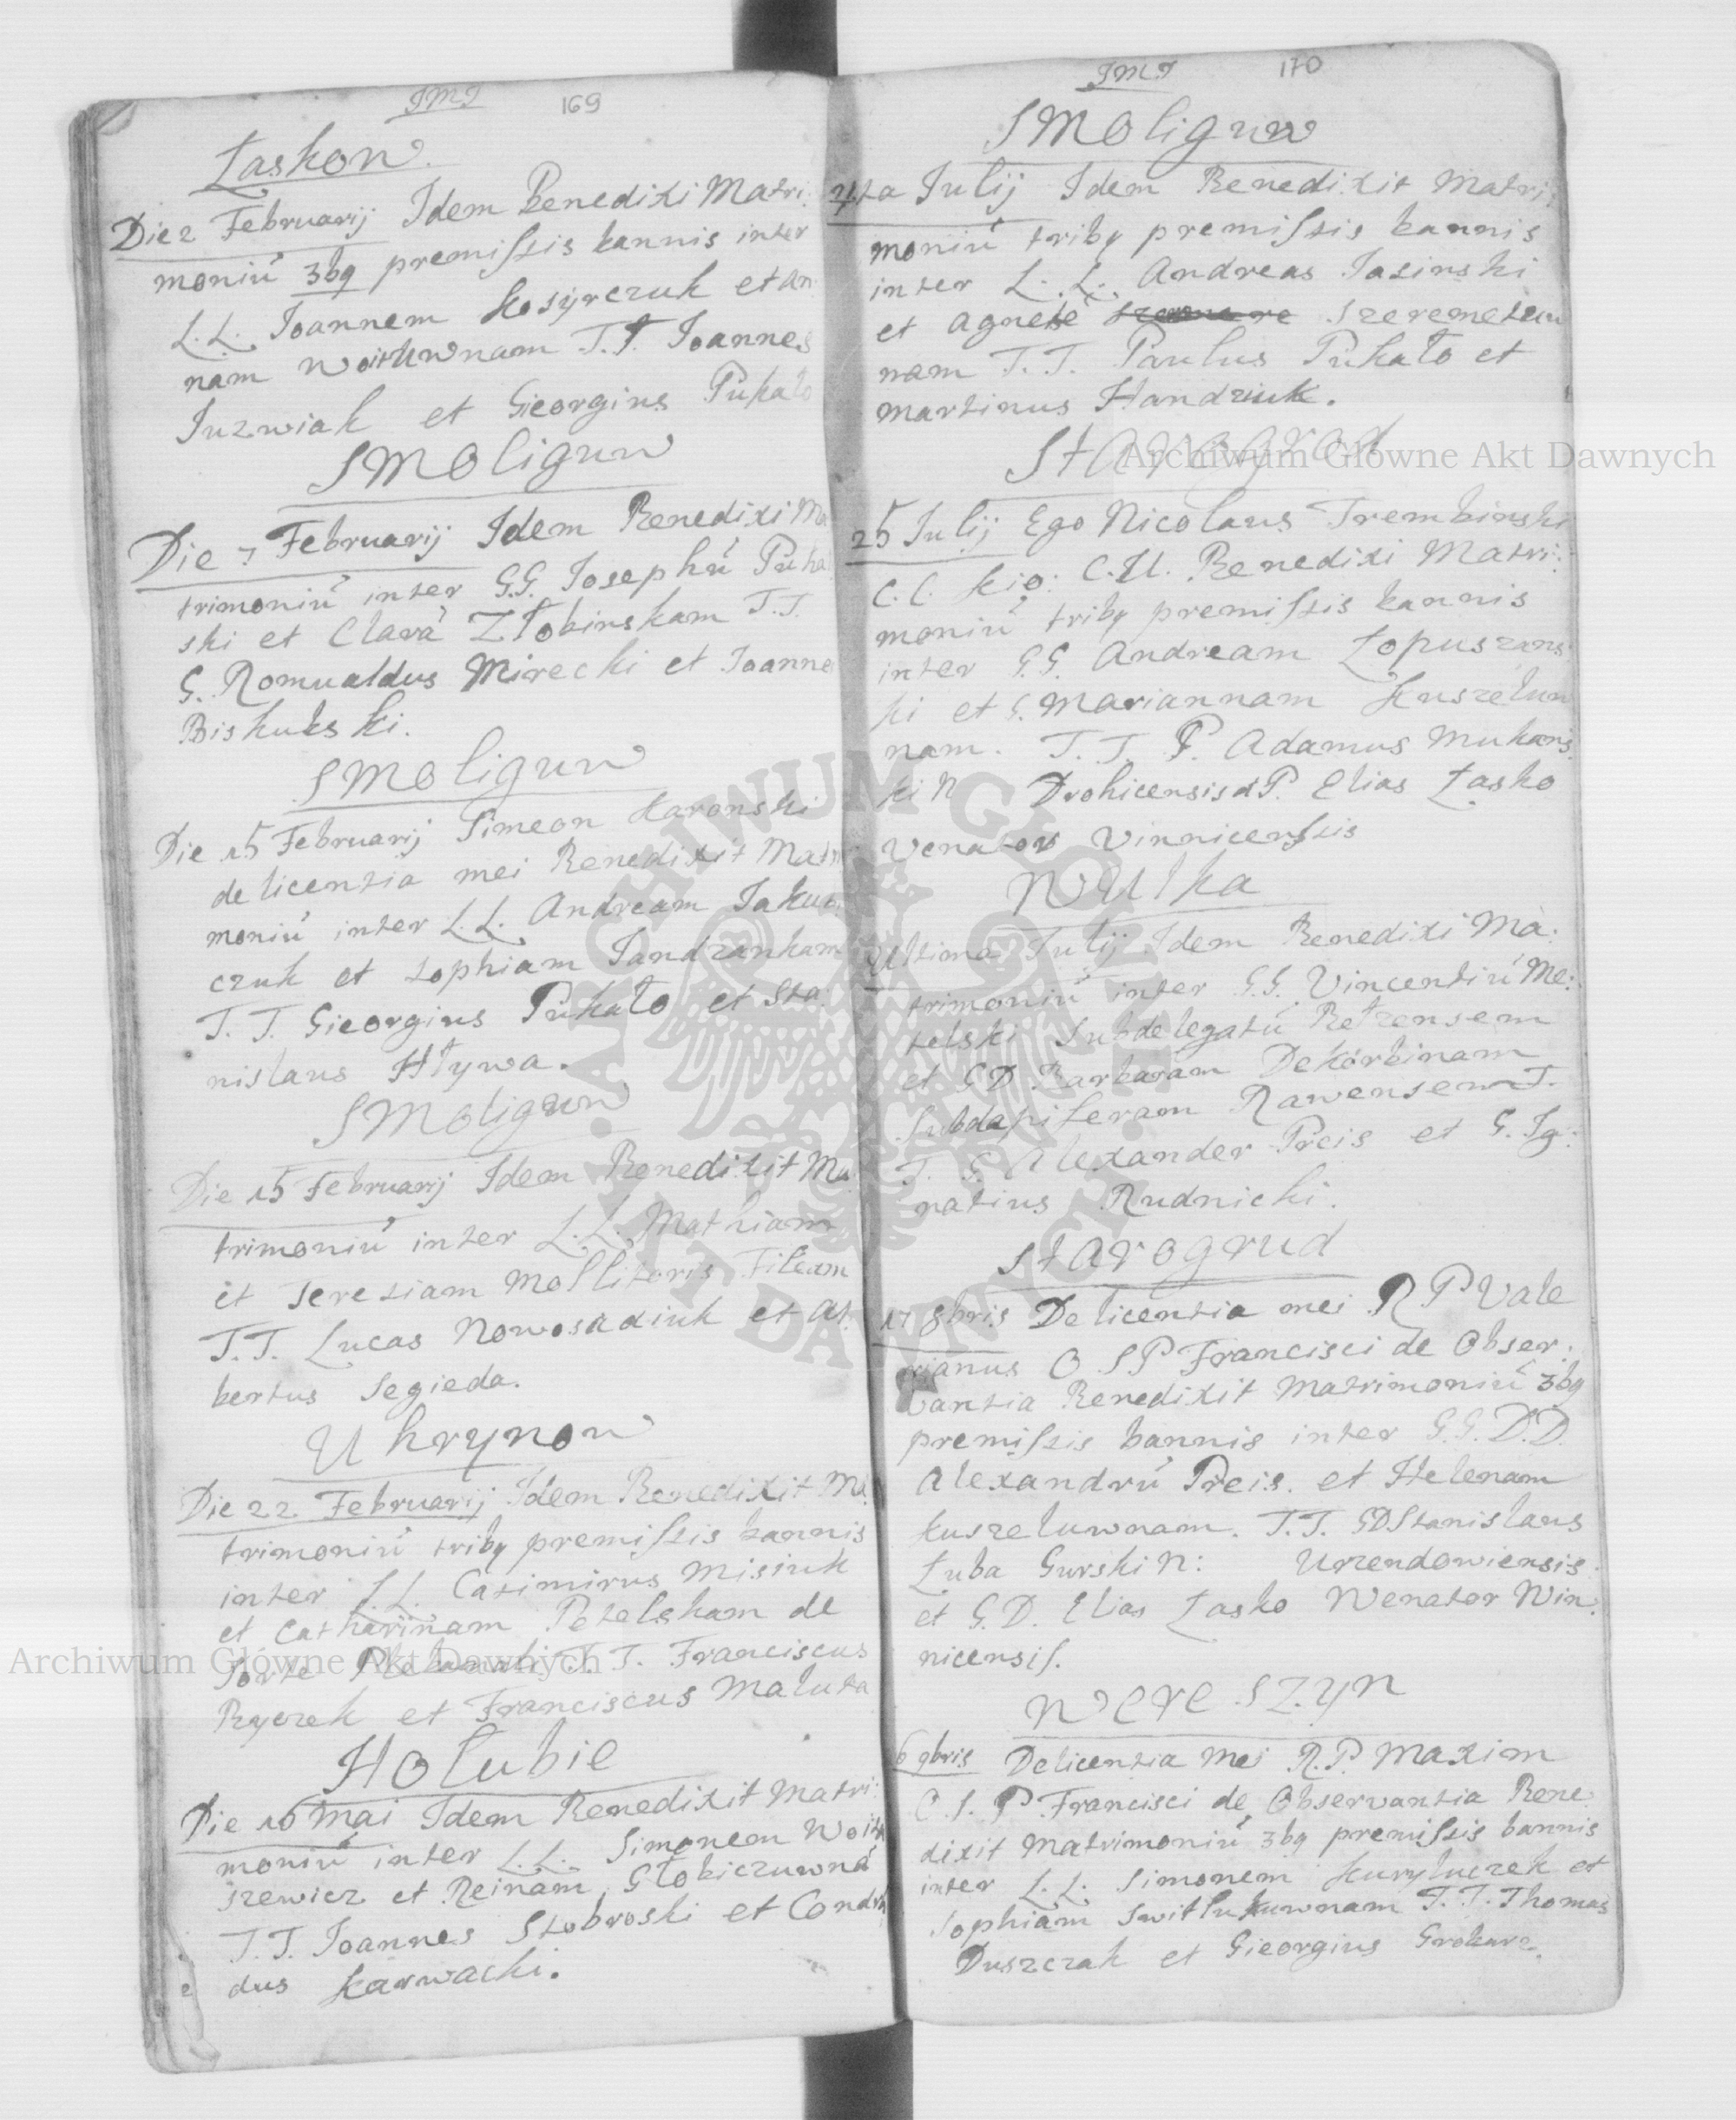 JMJ 169
Łaskow.
Die 2 Februarij Idem Benedixi Matri:
moniũ 3bq premissis bannis inter
L.L. Joannem Kosyrczuk et An:
nam Woitkwnam T.T. Joannes
Juzwiak et Gieorgius Pukało
SMoliguw
Die 7 Februarij Idem Benedixi Ma
trimoniũ inter G.G. Josephũ Pukal
ski et Clarã Złobinskam T.T.
G. Romualdus Mirecki et Joannes
Biskubski.
SMoliguw
Die 15 Februarij Simeon Karonski
de licentia mei Benedixit Matri
moniũ inter L.L. Andream Jakub
czuk et Sophiam Jandzankam
T.T. Gieorgius Pukało et Sta:
nislaus Hływa.
SMoliguw
Die 15 Februarij Idem Benedixit Ma
trimoniũ inter L.L. Mathiam
et Teresiam Mollitoris Filiam
T.T. Lucas Nowosadiuk et Al:
bertus Segieda.
Uhrynow
Die 22 Februarij Idem Benedixit Ma
trimoniũ tribq premissis bannis
inter L.L. Casimirus Misiuk
et Catharinam Petelskam de
Sorte T.T. Franciscus
Ryczek et Franciscus Maluta
Hołubie
Die 16 Mai Idem Benedixit Matri:
moniũ inter L.L. Simonem Woit
szewicz et Reinam Głobiczuwnã
T.T. Joannes Stobroski et Condra
dus Karwacki.
JMJ 170
SMoliguw
4ta Julij Idem Benedixit Matri:
moniũ tribq premissis bannis
inter L.L. Andreas Jasinski
et Agnetẽ Szeremetuw
nam T.T. Paulus Pukało et
Martinus Handziuk.
Starogrod
25 Julij Ego Nicolaus Trembinski
C.C. Kio: C.U. Benedixi Matri:
moniũ tribq premissis bannis
inter G.G. Andream Łopuszans
ki et G. Mariannam Kuszeluw
nam. T.T. P. Adamus Mukans
ki N Drohicensis et P. Elias Łasko
Venator Vinnicensis
Wulka
Ultima Julij Idem Benedixi Ma:
trimoniũ inter G.G. Vincentiũ Me:
telski Subdelegatũ Bełzensem
et G D Barbaram Dekórbinam
Subdapiferam Rawensem T.
T. G. Alexander Preis et G. Ig:
natius Rudnicki.
Starogrud
17 8bris De licentia mei R P Vale
rianus O S P Francisci de Obser:
vantia Benedixit Matrimoniũ 3bq
premissis bannis inter G.G. D.D.
Alexandrũ Preis. et Helenam
Kuszeluwnam. T.T. GD Stanislaus
Luba Gurski N: Urzendowiensis
et G.D. Elias Łasko Wenator Win:
nicensis.
Wereszyn
6 9bris De licentia mei R.P. Maxim
O.S.P Francisci de Observantia Bene
dixit Matrimoniũ 3bq premissis bannis
inter L.L. Simonem Kuryluczek et
Sophiam Switlukuwnam T.T. Thomas
Duszczak et Gieorgius
Archiwum Główne Akt Dawnych
Archiwum Główne Akt Dawnych
ARCHIWUM GŁÓWNE AKT DAWNYCH